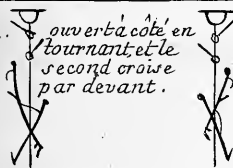 ouvert à côté en
tournant, et le
second croise
par devant.